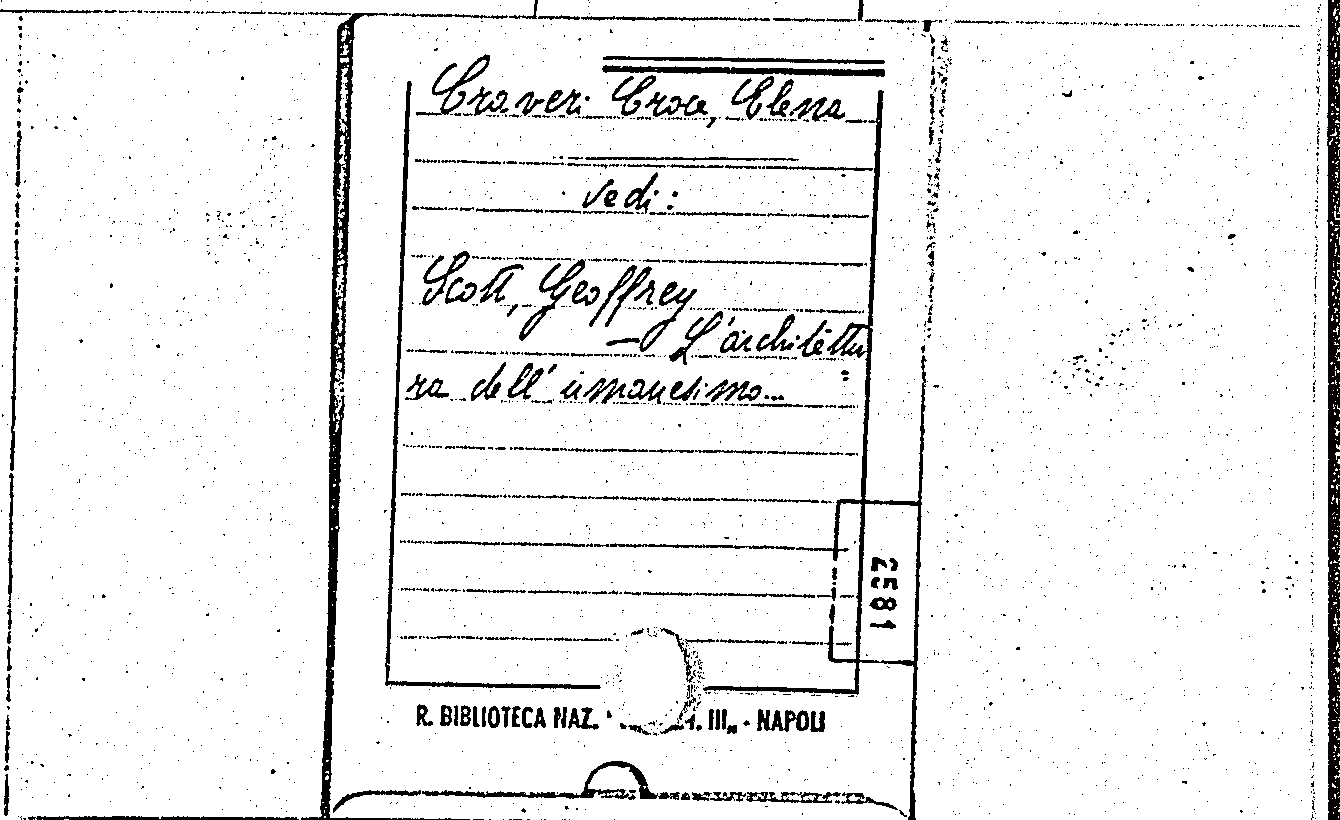 Craveri Croce, Elena
vedi:
Scott, Geoffrey
— L'architettu
ra dell' umanesimo...
2581
R. BIBLIOTECA NAZ. III„ - NAPOLI